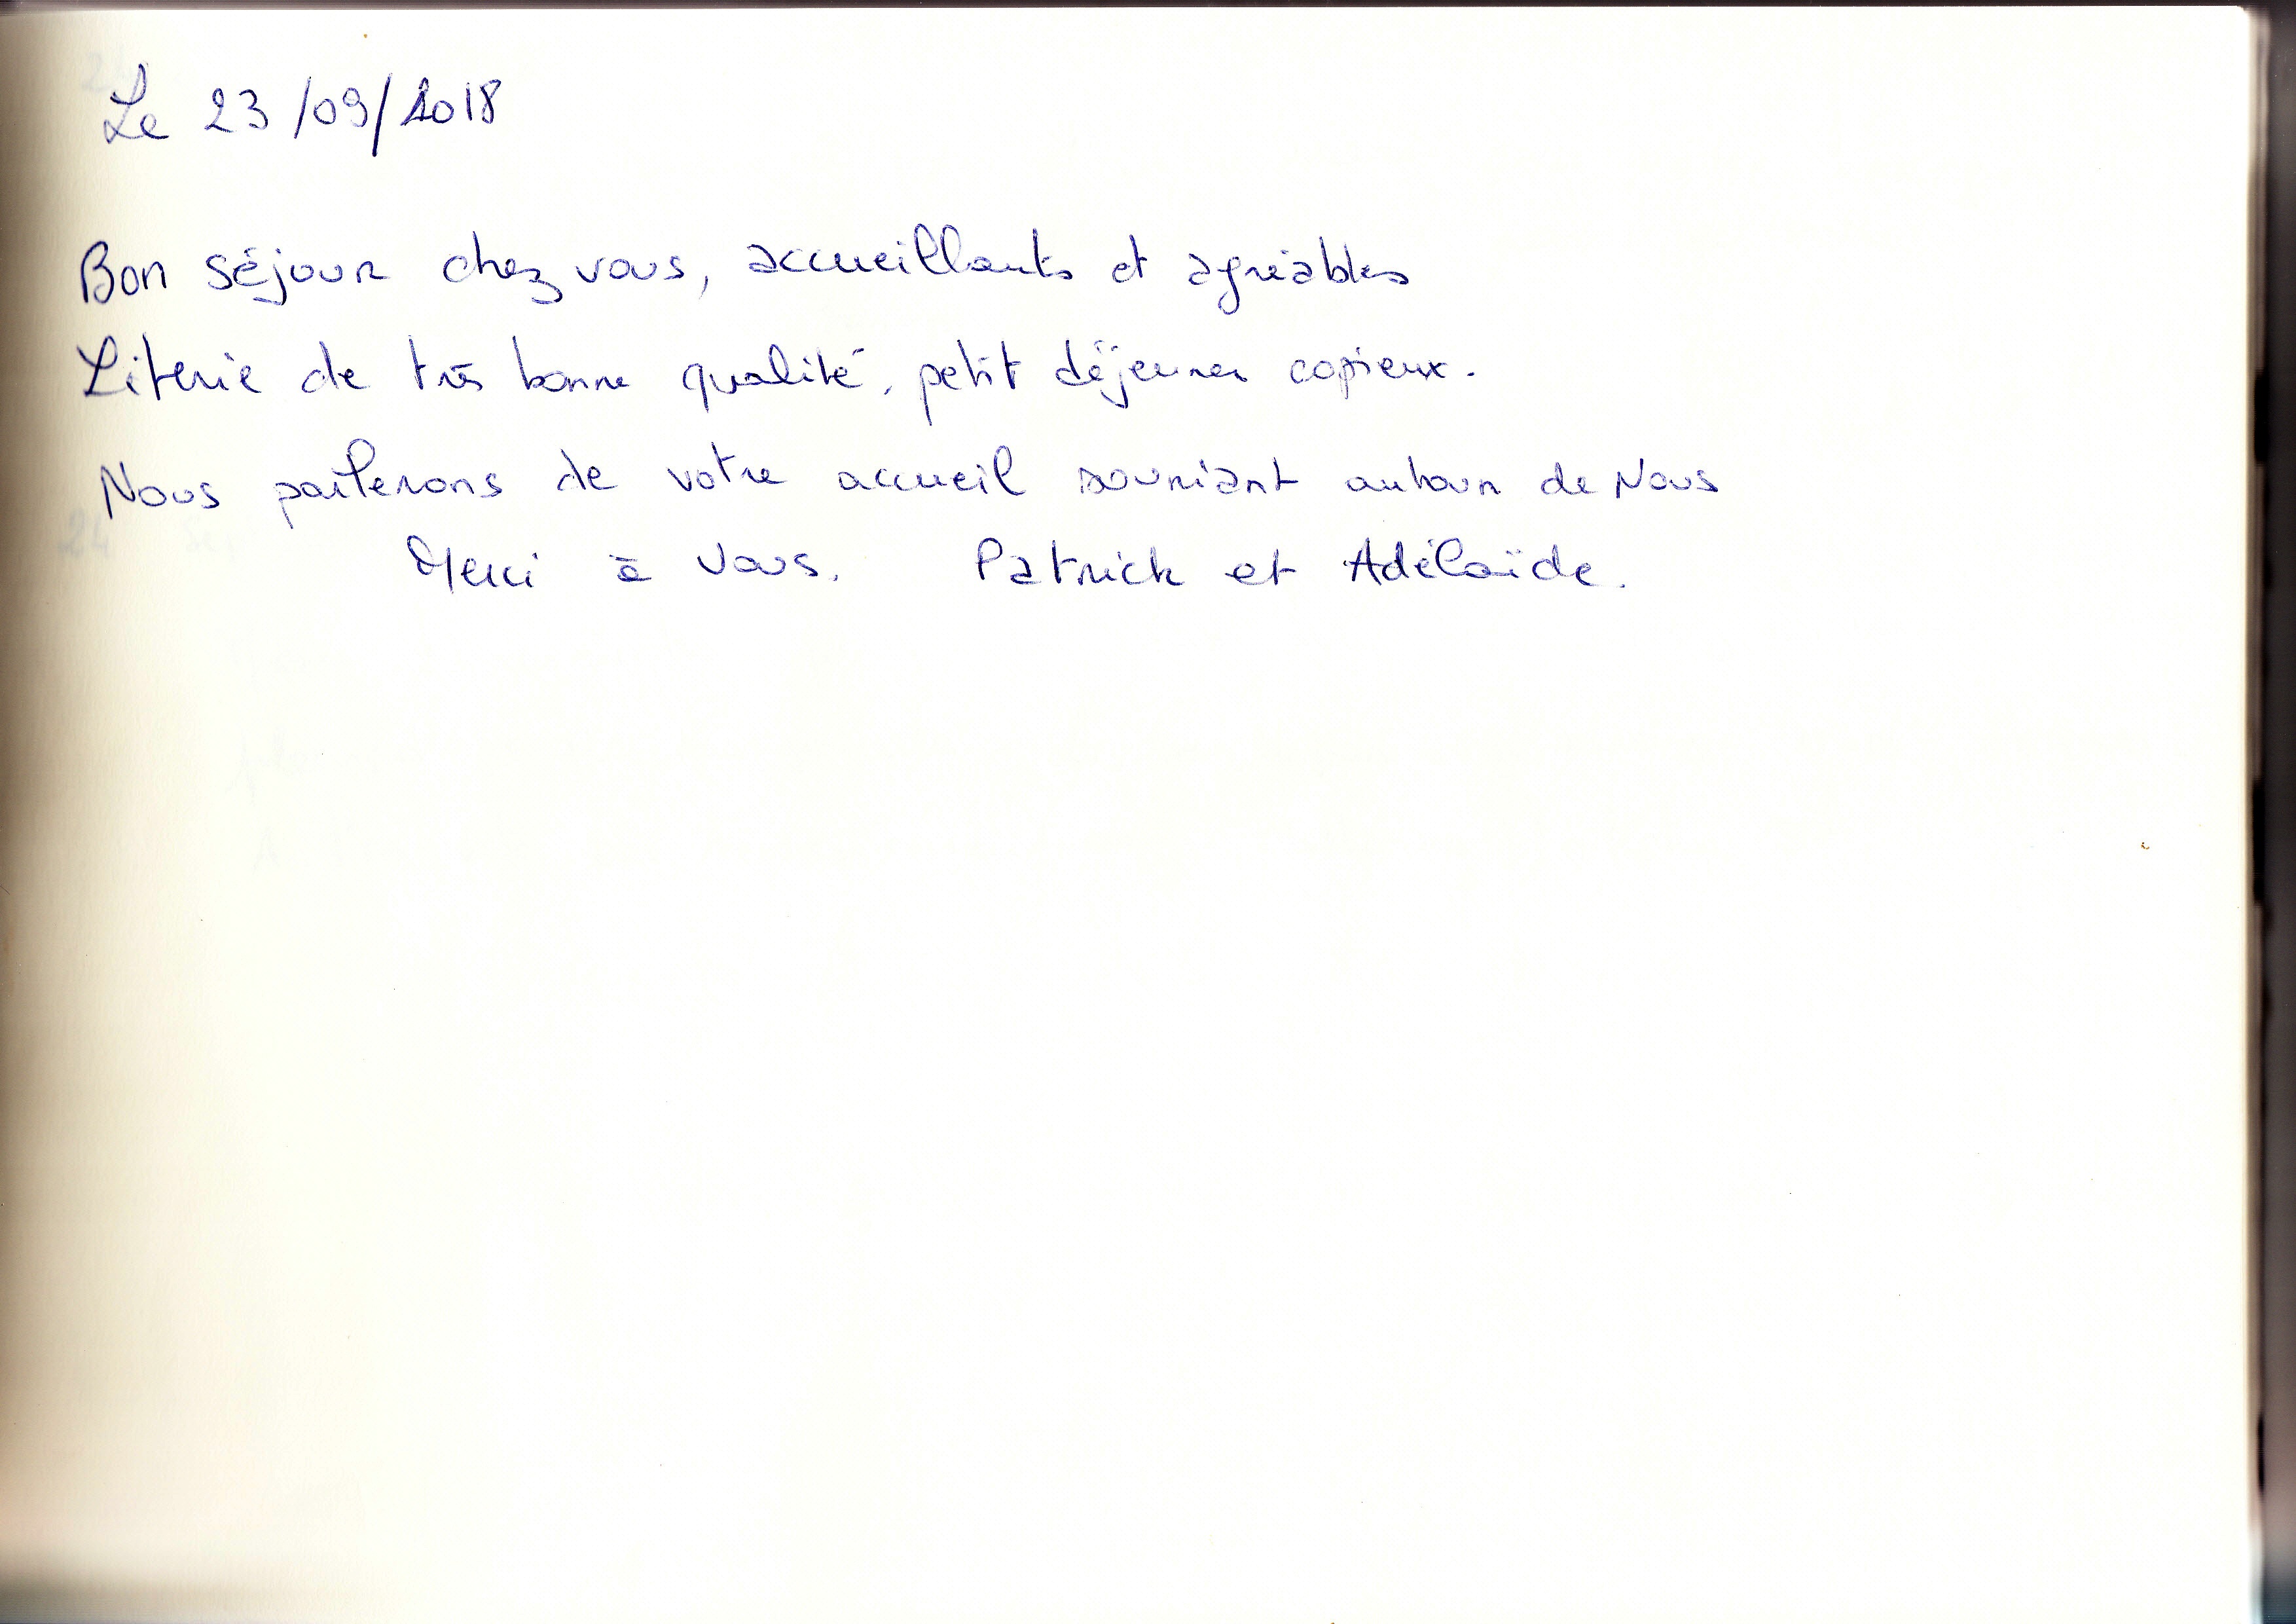 Le 23/09/2018
Bon séjour chez vous, accueillants et agréables
Literie de très bonne qualité, petit déjeuner copieux.
Nous parlerons de votre accueil souriant autour de Nous
Merci à vous. Patrick et Adélaïde.